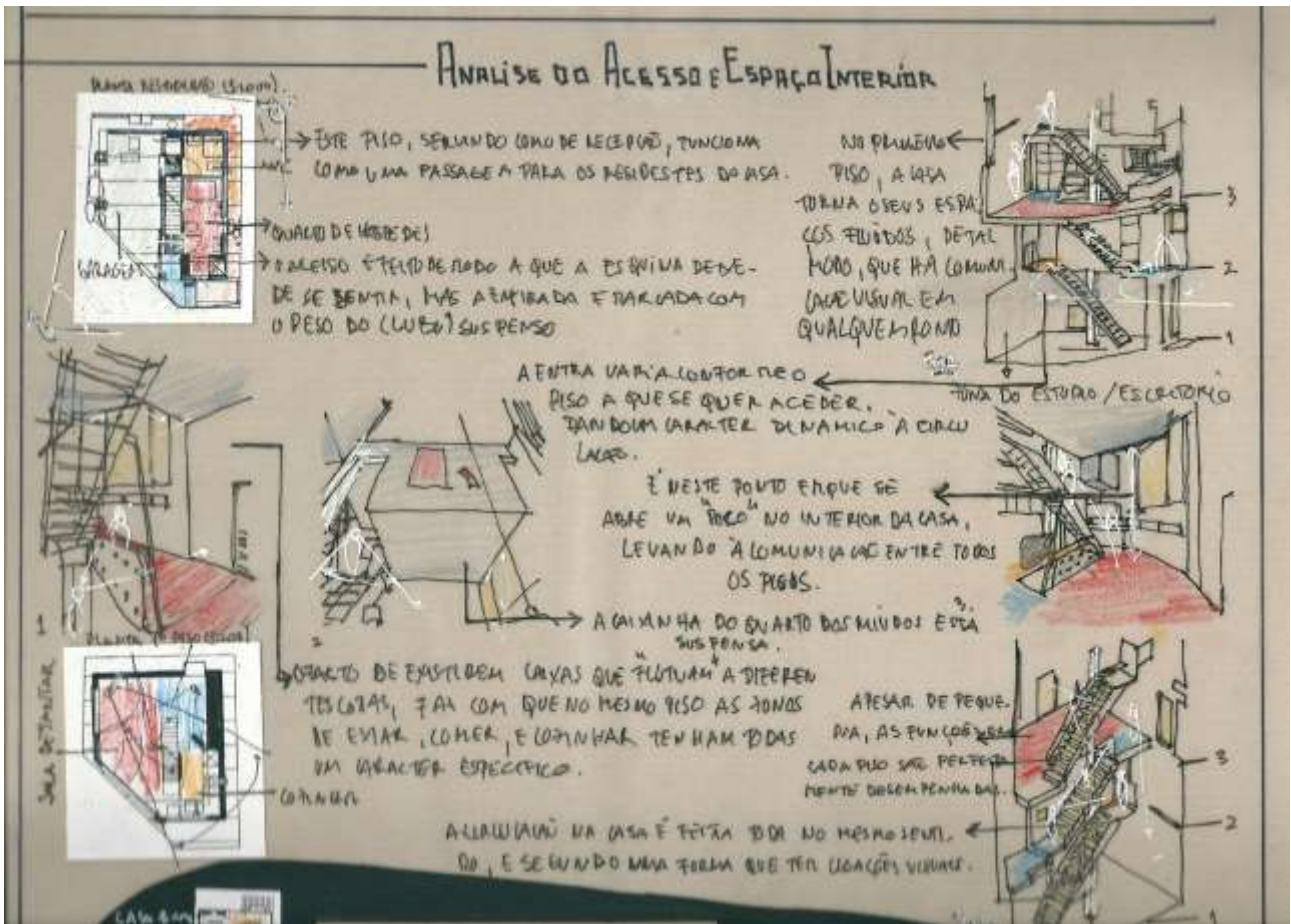 ANALISE DO ACESSO E ESPAÇO INTERIOR
ESTE PISO, SERVINDO COMO DE RECEPÇÃO, FUNCIONA
COMO UMA PASSAGEM PARA OS RESIDENTES DA CASA.
QUARTO DE HOSPEDES
GARAGEM
O ACESSO É FEITO DE MODO A QUE A ESQUINA
SE SENTIA, MAS E MARCADA COM
O PESO DO (CUBO) SUSPENSO
NO PRIMEIRO
PISO, A CASA
TORNA O SEUS ESPA
ÇOS FLUÍDOS, DE TAL
MODO, QUE HÁ COMUNI
VISUAL EM
QUALQUER PONTO
3
2
1
A ENTRA VARIA CONFORME O
PISO A QUE SE QUER ACEDER.
DANDO UM CARACTER DINAMICO À CIRCU
LAÇÃO.
DO ESTUDIO / ESCRITORIO
É NESTE PONTO EM QUE SE
ABRE UM "FOCO" NO INTERIOR DA CASA,
LEVANDO À COMUNICAÇÃO ENTRE TODOS
OS PISOS.
A CAIXINHA DO QUARTO DOS MIUDOS ESTÁ
SUSPENSA.
2
3
1
SALA DE JANTAR
O FACTO DE EXISTIREM CAIXAS QUE "FLUTUAM" A DIFEREN
TES COTAS, FAZ COM QUE NO MESMO PISO AS ZONAS
DE ESTAR, COMER, E COZINHAR TENHAM TODAS
UM CARACTER ESPECIFICO.
COZINHA
APESAR DE PEQUE
NA, AS FUNÇÕES
CADA PISO SÃO PERFEITA
MENTE DESEMPENHADAS.
3
2
A CIRCULAÇÃO NA CASA É FEITA TODA NO MESMO SENTI
DO, E SEGUNDO UMA FORMA QUE TEM LIGAÇÕES VISUAIS.